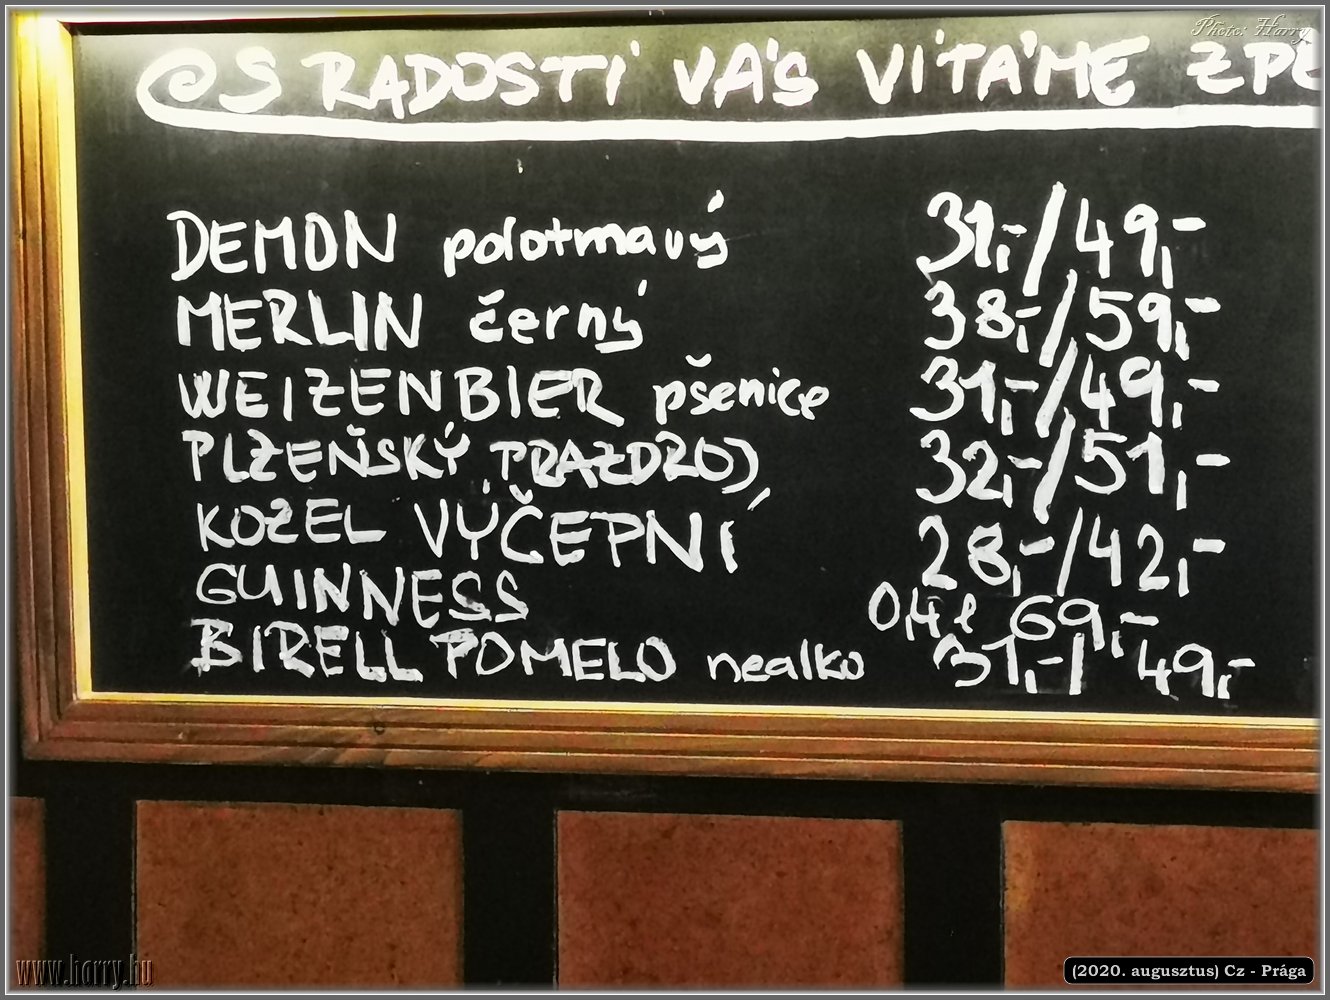 Photo: Harry
S RADOSTÍ VÁS VÍTÁME ZPĚ
DEMON polotmavý 31,-/49,-
MERLIN černý 38,-/59,-
WEIZENBIER pšenice 31,-/49,-
PLZEŇSKÝ PRAZDROJ 32,-/51,-
KOZEL VÝČEPNÍ 28,-/42,-
GUINNESS 0,4l 69,-
BIRELL POMELO nealko 31,-/49,-
www.harry.hu
(2020. augusztus) Cz - Prága